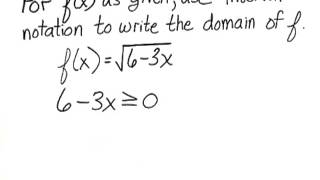 For f(x) as given, use
notation to write the domain of f.
f(x)=√6-3x
6-3x≥0